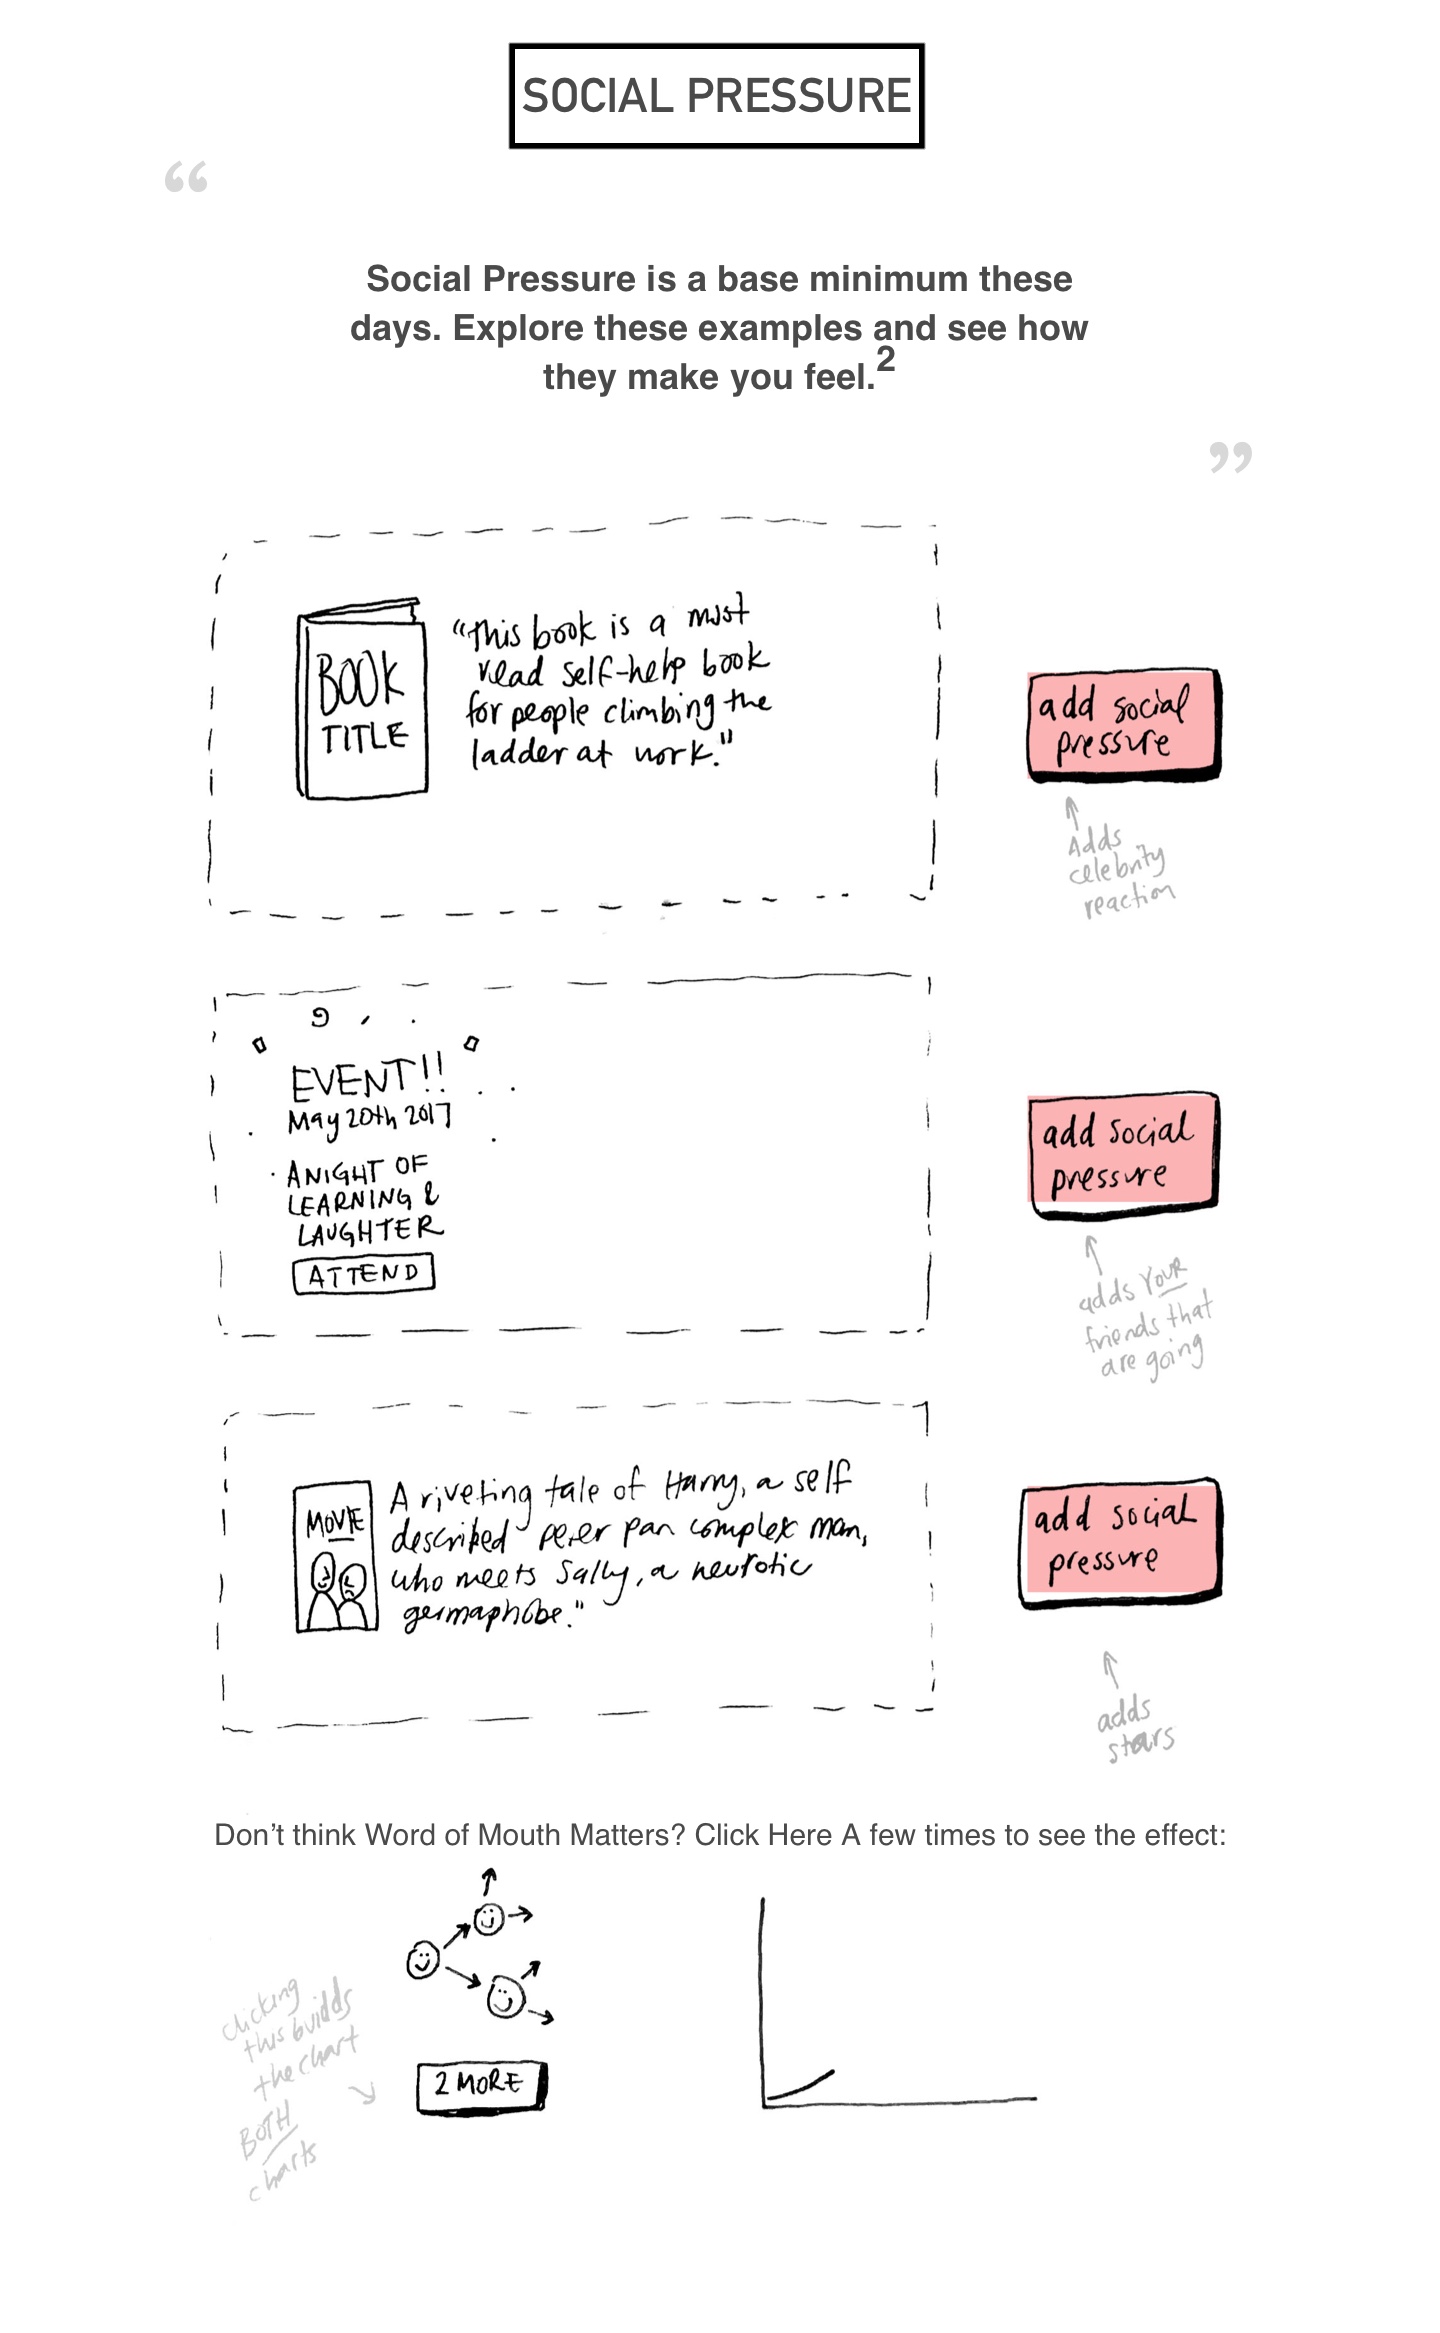 SOCIAL PRESSURE
“
Social Pressure is a base minimum these
days. Explore these examples and see how
they make you feel.2
”
BOOK
TITLE
“This book is a must
read self-help book
for people climbing the
ladder at work."
add social
pressure
Adds
celebrity
reaction
EVENT!!
May 20th 2017
A NIGHT OF
LEARNING &
LAUGHTER
ATTEND
add social
pressure
adds YOUR
friends that
are going
MOVIE
A riveting tale of Harry, a self
described peter pan complex man,
who meets Sally, a neurotic
germaphobe."
add social
pressure
adds
stars
Don’t think Word of Mouth Matters? Click Here A few times to see the effect:
clicking
this builds
the chart
BOTH
charts
2 MORE